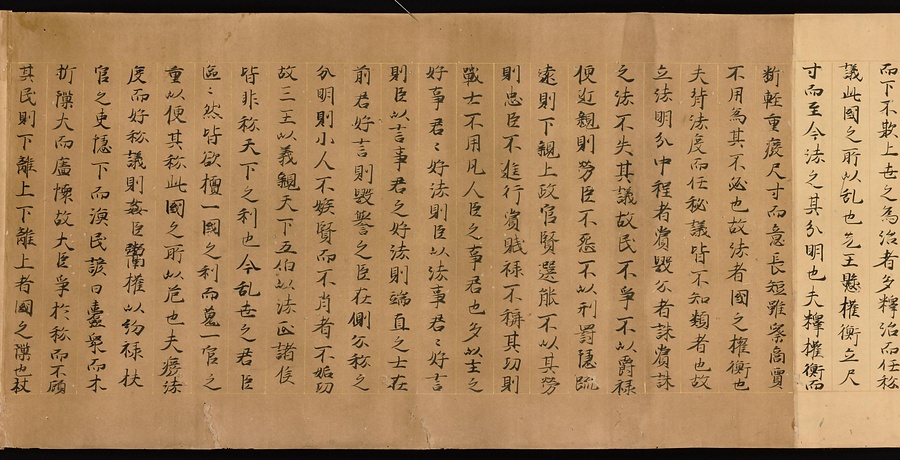 而下不欺上世之為治者多釋治而任私
議此國之所以乱也先王懸權衡立尺
寸而至今法之其分明也夫釋權衡而
斷輕重廢尺寸而意長短雖察商賈
不用為其不必也故法者國之權衡也
夫背法度而任秘議皆不知類者也故
立法明分中程者賞毀公者誅賞誅
之法不失其議故民不爭不以爵禄
便近親則勞臣不怨不以刑罰隱疏
遠則下親上故官賢選能不以其勞
則忠臣不進行賞賤禄不稱其功則
戰士不用凡人臣之事君也多以主之
好事君〻好法則臣以法事君〻好言
則臣以言事君之好法則端直之士在
前君好言則毀譽之臣在側公私之
分明則小人不嫉賢而不肖者不妬功
故三王以義親天下五伯以法正諸侯
皆非私天下之利也今乱世之君臣
區〻然皆欲擅一國之利而蒐一官之
重以便其私此國之所以危也夫廢法
度而好私議則姦臣鬻權以約禄秩
官之吏隱下而漁民諺曰蠹衆而木
折隟大而廬懷故大臣爭於私而不顧
其民則下離上下離上者國之隟也秩